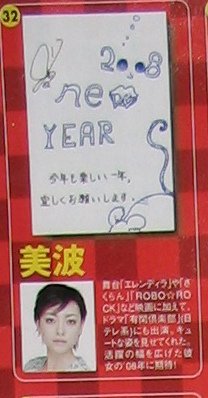 32
2008
new
YEAR
今年も楽しい一年、
宜しくお願いします。
美波
舞台「エレンディラ」や「さ
くらん」「ROBO☆RO
CK」など映画に加えて、
ドラマ「有閑倶楽部」(日
テレ系)にも出演。キュ
ートな姿を見せてくれた。
活躍の幅を広げた彼
女の'08年に期待!